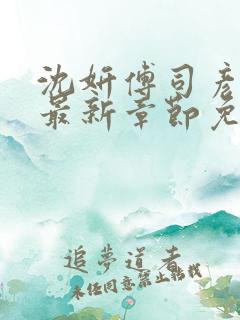 沈妍傅司彦
最新章节免
追夢道者
未任同意禁止転找